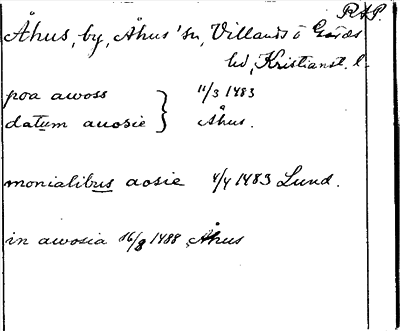 RAP.
Åhus, by, Åhus' sn, Villands o Gärds
hd, Kristianst. l.
poa awoss } 11/3 1483
datum auosie } Åhus.
monialibus aosie 4/4 1483 Lund.
in awosia 16/8 1488 Åhus